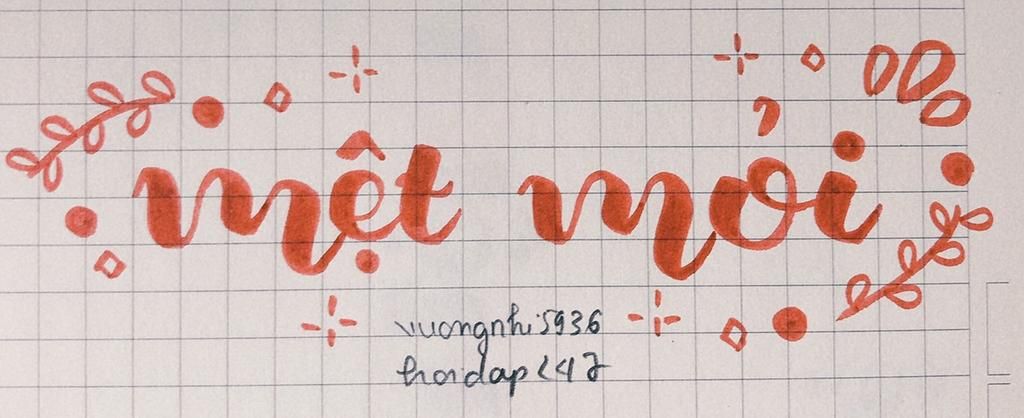 mệt mỏi
vuongnhi5936
hoidap247